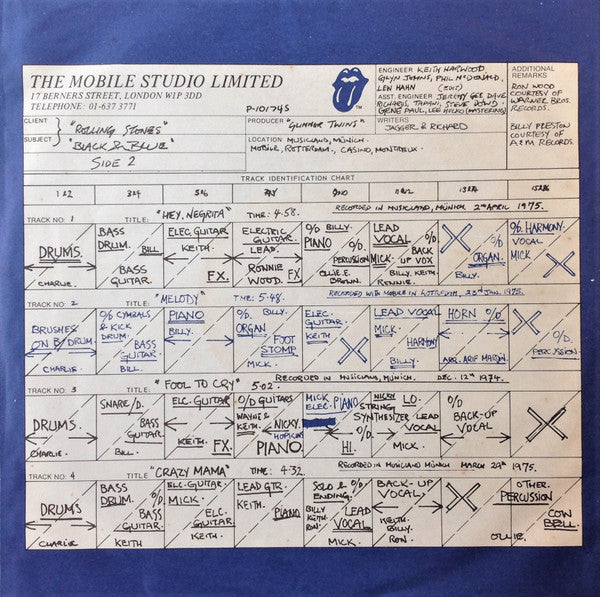 THE MOBILE STUDIO LIMITED
17 BERNERS STREET, LONDON W1P 3DD
TELEPHONE: 01-637 3771
P-10174S
TM
ENGINEER KEITH HARWOOD,
GLYN JOHNS, PHIL McDONALD,
LEW HAHN
ASST. ENGINEER JEREMY GEE DAVE
RICHARDS, TAPANI, STEVE DOWD
GENE PAUL, LEE HULKO (MASTERING)
ADDITIONAL
REMARKS
RON WOOD
COURTESY OF
WARNER BROS.
RECORDS.
BILLY PRESTON
COURTESY OF
A&M RECORDS.
CLIENT "ROLLING STONES"
SUBJECT "BLACK & BLUE"
SIDE 2
PRODUCER "GLIMMER TWINS"
WRITERS
JAGGER & RICHARD
LOCATION MUSICLAND, MUNICH.
MOBILE, ROTTERDAM, CASINO, MONTREUX.
TRACK IDENTIFICATION CHART
1&2 3&4 5&6 7&8 9&10 11&12 13&14 15&16
TRACK NO: 1 TITLE: "HEY, NEGRITA" TIME: 4.58. RECORDED IN MUSICLAND, MUNICH 2ND APRIL 1975.
DRUMS.
CHARLIE.
BASS
DRUM.
BILL
BASS
GUITAR.
ELEC. GUITAR
KEITH.
FX.
ELECTRIC
GUITAR.
LEAD.
RONNIE
WOOD.
FX
O/D BILLY.
PIANO
O/D
PERCUSSION
OLLIE E.
BROWN.
LEAD
VOCAL
MICK.
O/D
BACK
UP VOX
BILLY. KEITH.
RONNIE.
O/D
ORGAN.
BILLY.
O/D. HARMONY.
VOCAL
MICK
TRACK NO: 2 TITLE: "MELODY" TIME: 5.48. RECORDED WITH MOBILE IN ROTTERDAM, 23RD JAN. 1975.
BRUSHES
ON B/DRUM.
CHARLIE.
O/D CYMBALS
& KICK
DRUM.
BASS
GUITAR.
BILL
PIANO
BILLY.
O/D. BILLY.
ORGAN
FOOT
STOMP
MICK.
ELEC.
GUITAR
KEITH
LEAD VOCAL
MICK.
HARMONY
BILLY.
HORN O/D.
ARR. ARIF MARDIN.
O/D.
PERCUSSION.
TRACK NO: 3 TITLE: "FOOL TO CRY" 5.02. RECORDED IN MUSICLAND, MUNICH. DEC. 12TH 1974.
DRUMS.
CHARLIE.
SNARE/D.
BASS
GUITAR
BILL.
ELC. GUITAR
KEITH.
FX.
O/D GUITARS
WAYNE &
KEITH.
NICKY
HOPKINS
PIANO.
MICK
ELEC. PIANO
O/D.
HI.
NICKY LO.
STRINGS
SYNTHESIZER LEAD
VOCAL
MICK.
O/D
BACK-UP
VOCAL
TRACK NO: 4 TITLE: "CRAZY MAMA" TIME: 4.32. RECORDED IN MUSICLAND MUNICH MARCH 29TH 1975.
DRUMS
CHARLIE
BASS
DRUM. O/D.
BASS
GUITAR.
KEITH
ELC. GUITAR
MICK.
ELC.
GUITAR
KEITH.
LEAD GTR.
KEITH.
PIANO
SOLO & O/D
ENDING.
BILLY
KEITH.
RON.
LEAD
VOCAL
MICK.
BACK-UP
VOCAL.
KEITH.
BILLY.
RON.
OTHER.
PERCUSSION
COW
BELL.
OLLIE.